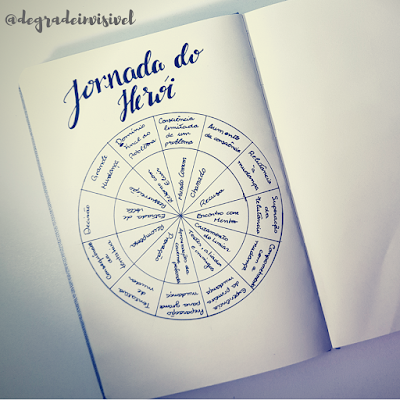 @degradeinvisivel
Jornada do
Herói
Consciência
limitada
de um
problema
Aumento
de consciência
Relutância
mudança
Superação
da
Relutância
Comprometimento
com a
mudança
Experiência
da primeira
mudança
Preparação
para grande
mudança
Tentativa
de
mudar
Consequências
da
tentativa
Decisão
Grande
Mudança
Domínio
final do
Problema
Mundo Comum
Chamado
Recusa
Encontro com
Mentor
Cruzamento
do Limiar
Testes, aliados
e inimigos
Aproximação
Provação
Recompensa
Estrada de
volta
Ressurreição
Retorno
com
Elixir